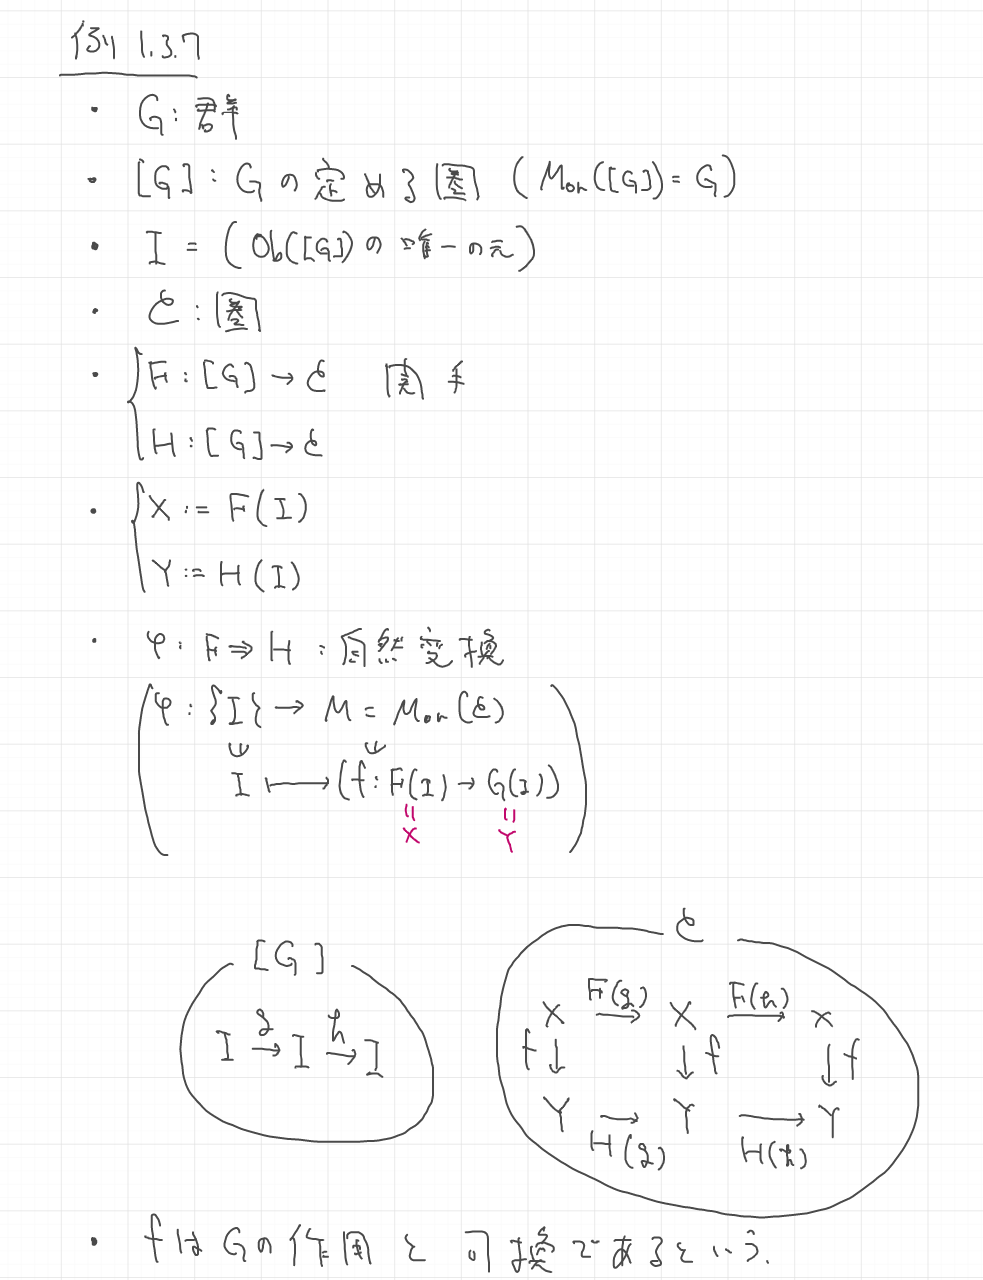 例 1.3.7
・ G: 群
・ [G] : Gの定める圏 (Mor([G]) = G)
・ I = (Ob([G])の唯一の元)
・ C : 圏
・ F : [G] → C 関手
H : [G] → C
・ X := F(I)
Y := H(I)
・ φ : F ⇒ H : 自然変換
φ : {I} → M = Mor(C)
∪ ∪
I ⟼ (f : F(I) → G(I))
= =
X Y
[G]
I g→ I h→ I
C
F(g) F(h)
X → X → X
f↓ ↓f ↓f
Y → Y → Y
H(g) H(h)
・ fはGの作用と可換であるという.